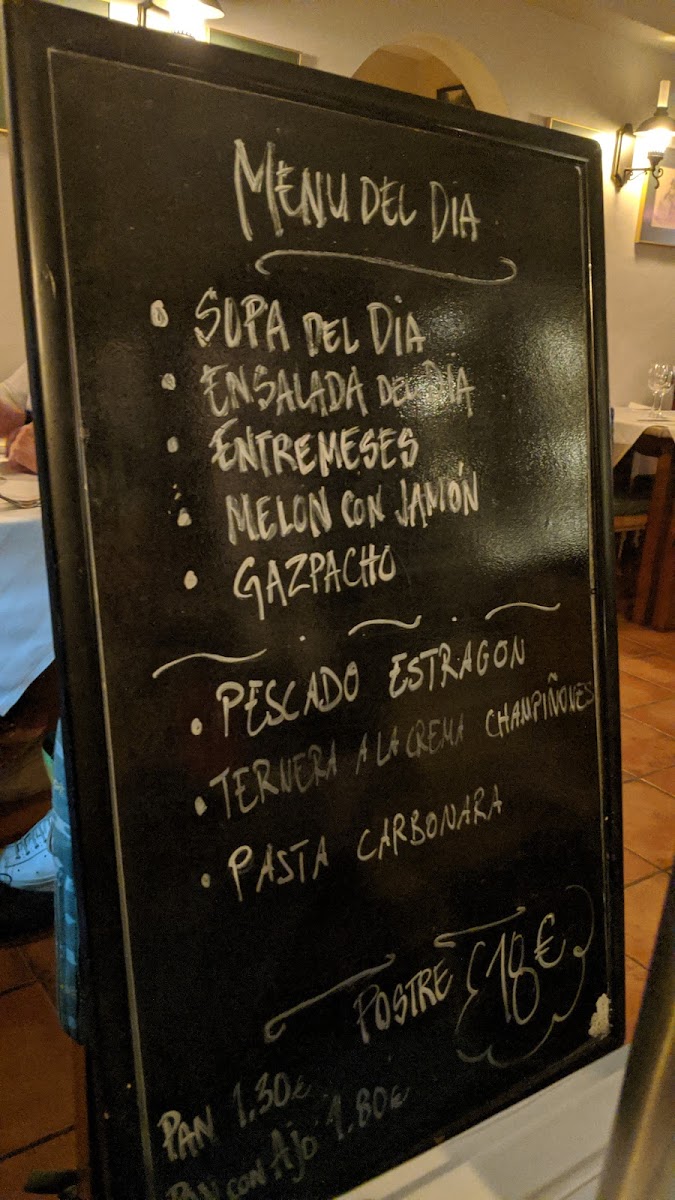 MENU DEL DIA
• SOPA DEL DIA
• ENSALADA DEL DIA
• ENTREMESES
• MELON CON JAMÓN
• GAZPACHO
• PESCADO ESTRAGON
• TERNERA A LA CREMA CHAMPIÑONES
• PASTA CARBONARA
POSTRE 18€
PAN 1.30€
PAN CON AJO 1.80€